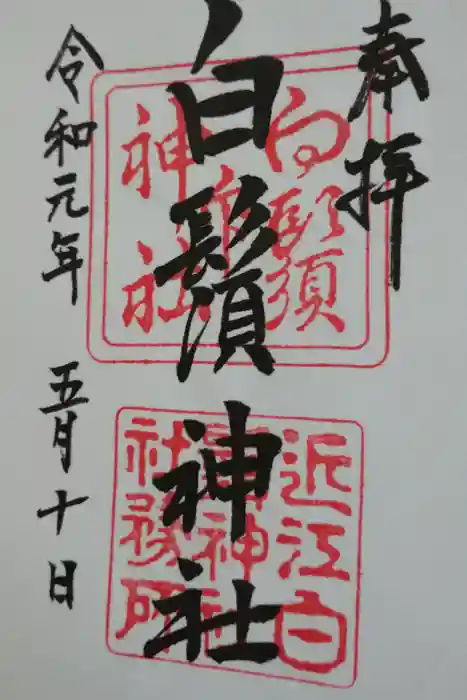 奉拝
白鬚神社
令和元年 五月十日
白鬚
神社
近江白
鬚神社
社務所